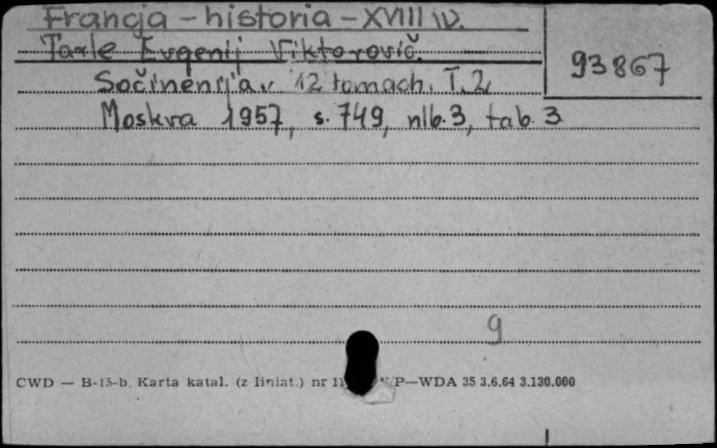 Francja – historia – XVIII w.
Tarle Evgenij Viktorovič.
93867
Sočinenija v 12 tomach. T. 2
Moskva 1957, s. 749, nlb. 3, tab. 3
9
CWD — B-15-b. Karta katal. (z liniat.) nr P—WDA 35 3.6.64 3.130.000